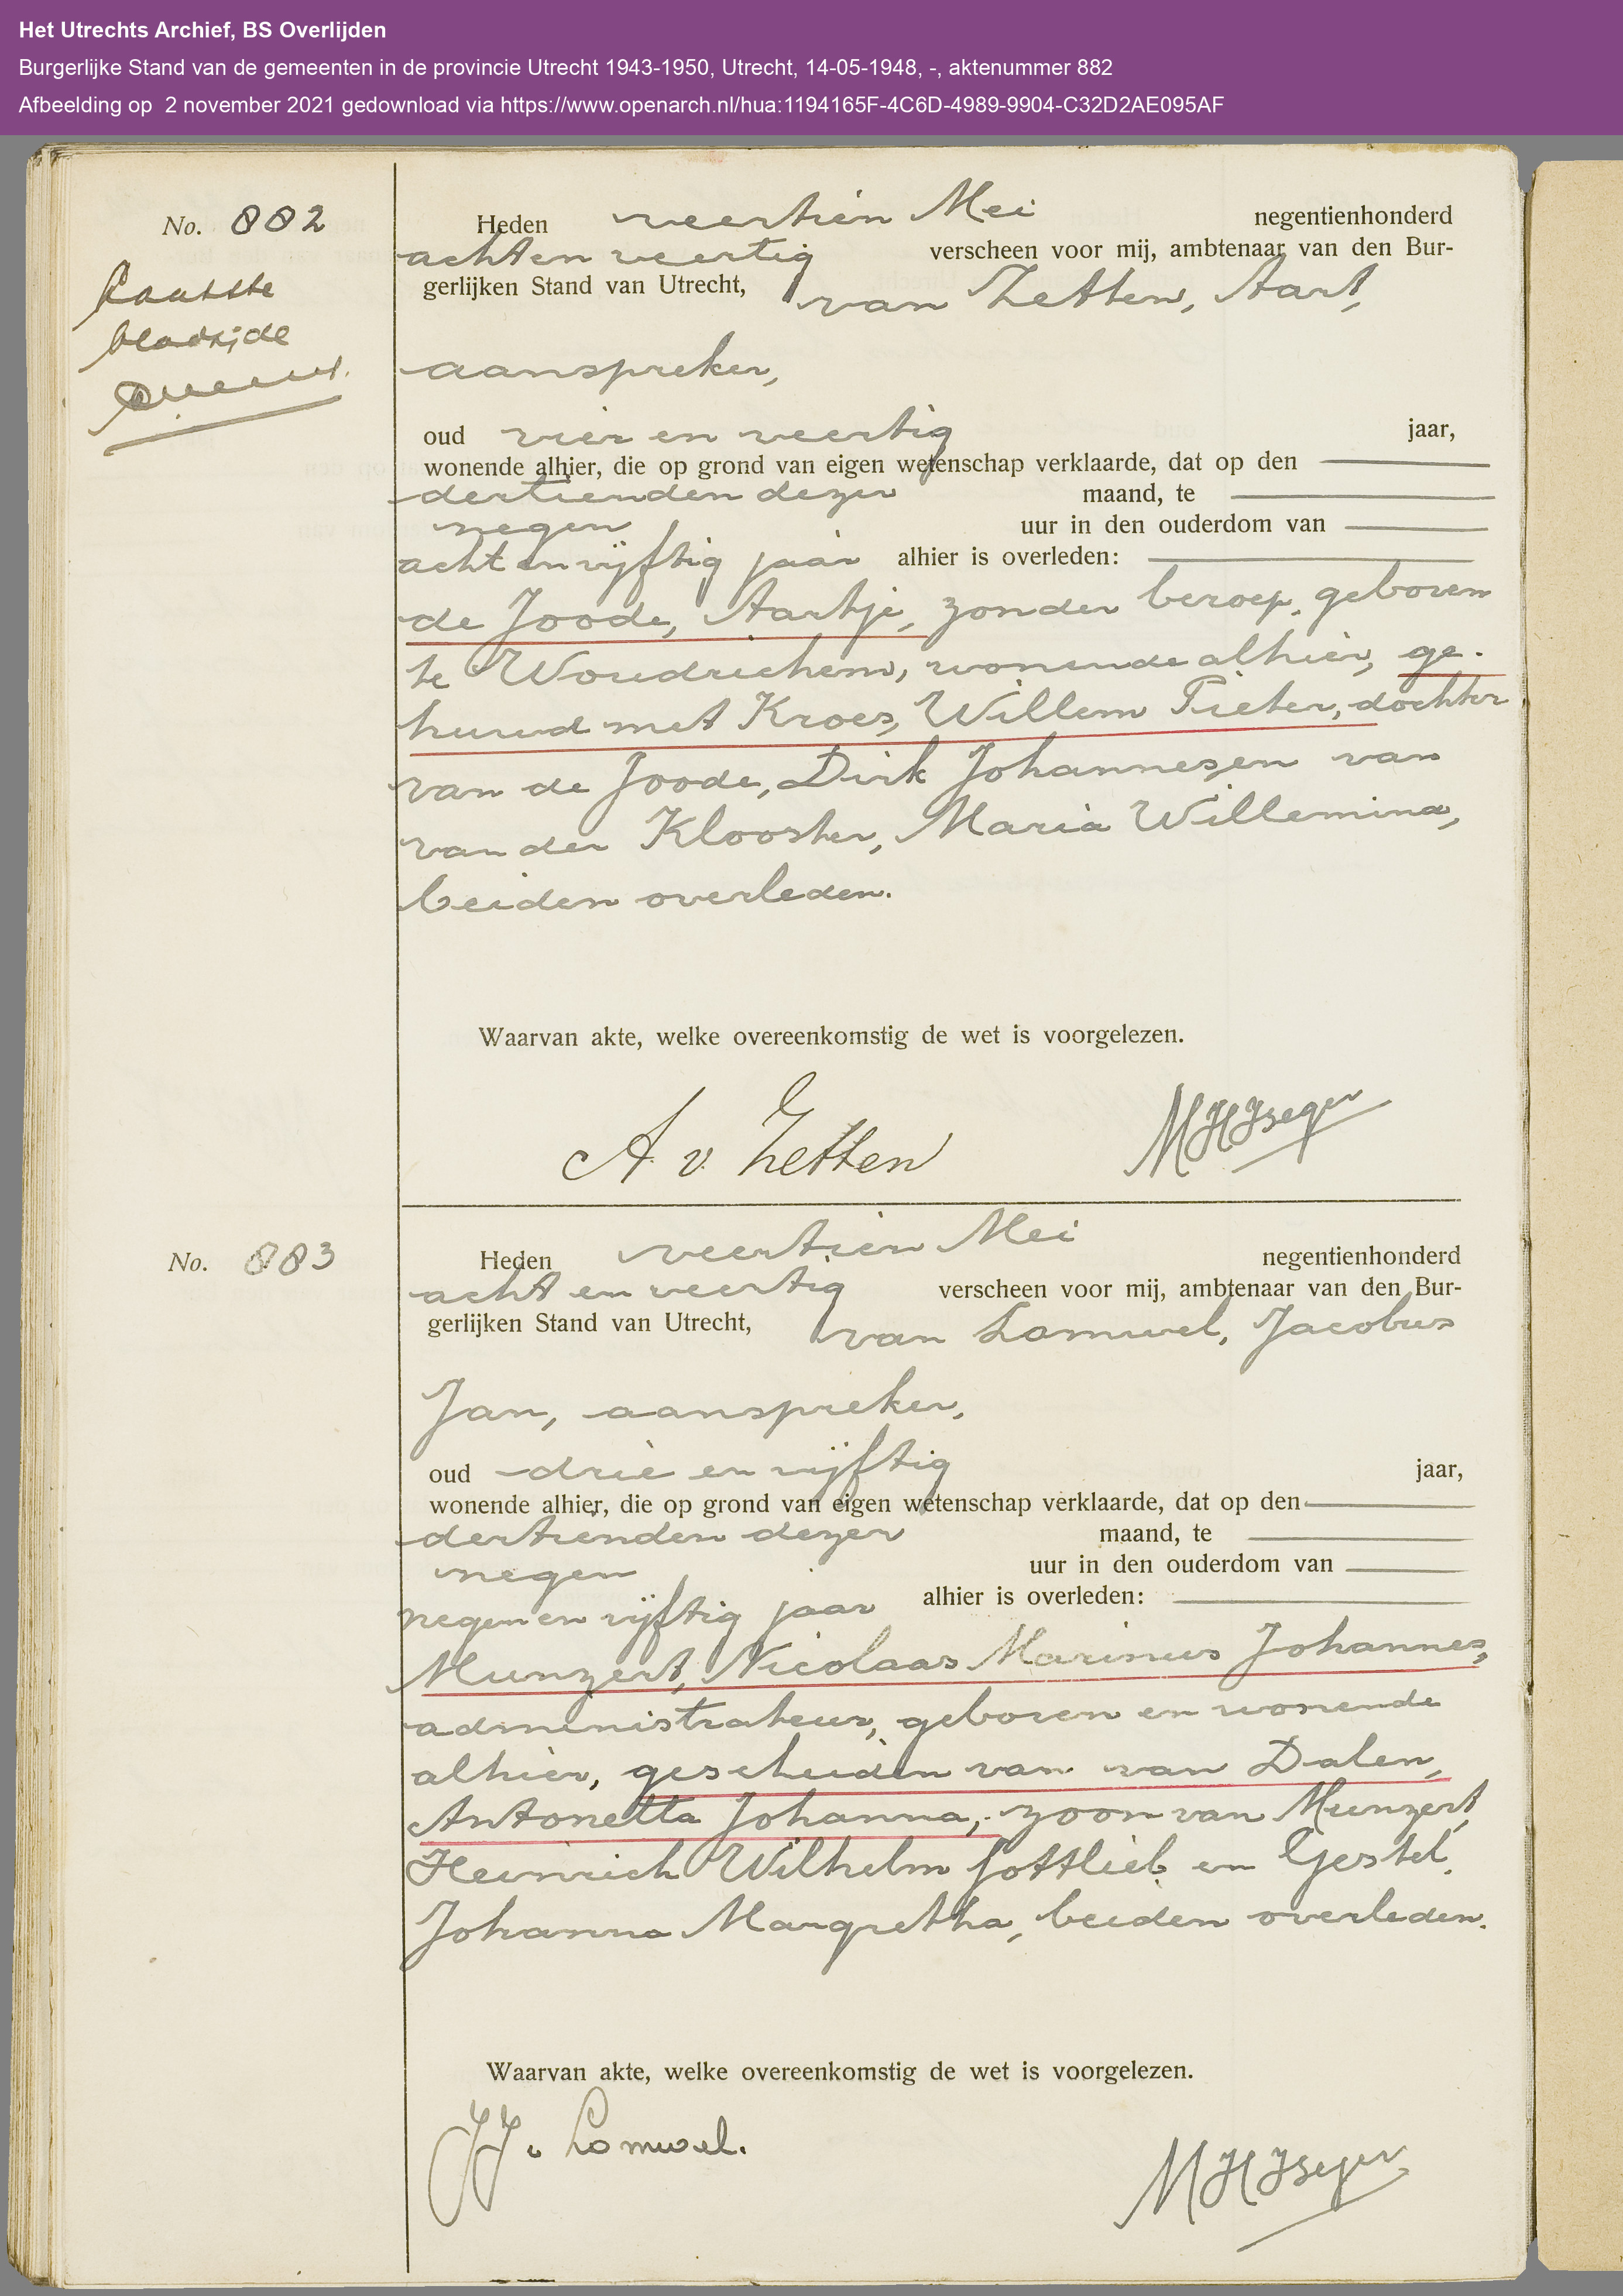 Het Utrechts Archief, BS Overlijden
Burgerlijke Stand van de gemeenten in de provincie Utrecht 1943-1950, Utrecht, 14-05-1948, -, aktenummer 882
Afbeelding op 2 november 2021 gedownload via https://www.openarch.nl/hua:1194165F-4C6D-4989-9904-C32D2AE095AF
No. 882
Laatste
bladzijde
Heden veertien Mei negentienhonderd
acht en veertig verscheen voor mij, ambtenaar van den Bur-
gerlijken Stand van Utrecht, van Zetten, Aart,
aanspreker,
oud vier en veertig jaar,
wonende alhier, die op grond van eigen wetenschap verklaarde, dat op den
dertienden dezer maand, te
negen uur in den ouderdom van
acht en vijftig jaar alhier is overleden:
de Joode, Aartje, zonder beroep, geboren
te Woudrichem, wonende alhier, ge-
huwd met Kroes, Willem Pieter, dochter
van de Joode, Dirk Johannes en van
van der Klooster, Maria Willemina,
beiden overleden.
Waarvan akte, welke overeenkomstig de wet is voorgelezen.
A. v. Zetten MHIJseger
No. 883
Heden veertien Mei negentienhonderd
acht en veertig verscheen voor mij, ambtenaar van den Bur-
gerlijken Stand van Utrecht, van Lomwel, Jacobus
Jan, aanspreker,
oud drie en vijftig jaar,
wonende alhier, die op grond van eigen wetenschap verklaarde, dat op den
dertienden dezer maand, te
negen uur in den ouderdom van
negen en vijftig jaar alhier is overleden:
Munzert, Nicolaas Marinus Johannes,
administrateur, geboren en wonende
alhier, gescheiden van van Dalen,
Antonetta Johanna, zoon van Munzert,
Heinrich Wilhelm Gottlieb en Gestel,
Johanna Margretha, beiden overleden.
Waarvan akte, welke overeenkomstig de wet is voorgelezen.
JJ v Lomwel. MHIJseger